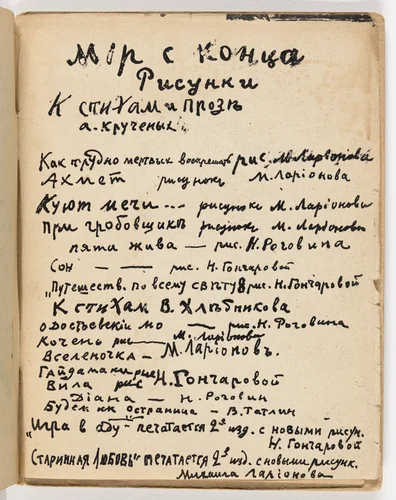 мір с конца
Рисунки
К стихам и прозѣ
а. Крученых.
Как трудно мертвых воскрешать рис. М. Ларіонова
Ахмет рисунокъ М. Ларіонова
Куют мечи... рисунокъ М. Ларіонова
При гробовщикѣ рисунокъ М. Ларіонова
пята жива — рис. Н. Роговина
Сон — — рис. Н. Гончаровой
„Путешеств. по всему свѣту 8 рис. Н. Гончаровой
К стихам В. Хлѣбникова
о Достоевскій мо — рис. Н. Роговина
Кочень рис М. Ларіонова
Вселеночка — М. Ларіоновъ.
Гайдамаки рис
Вила рис Н. Гончаровой
Діана — Н. Роговин
Будем ик остраница — В. Татлин
„Игра в аду" — печатается 2е изд. с новыми рисун.
Н. Гончаровой
Старинная Любовь" печатается 2е изд. с новыми рисунк.
Михаила Ларіонова